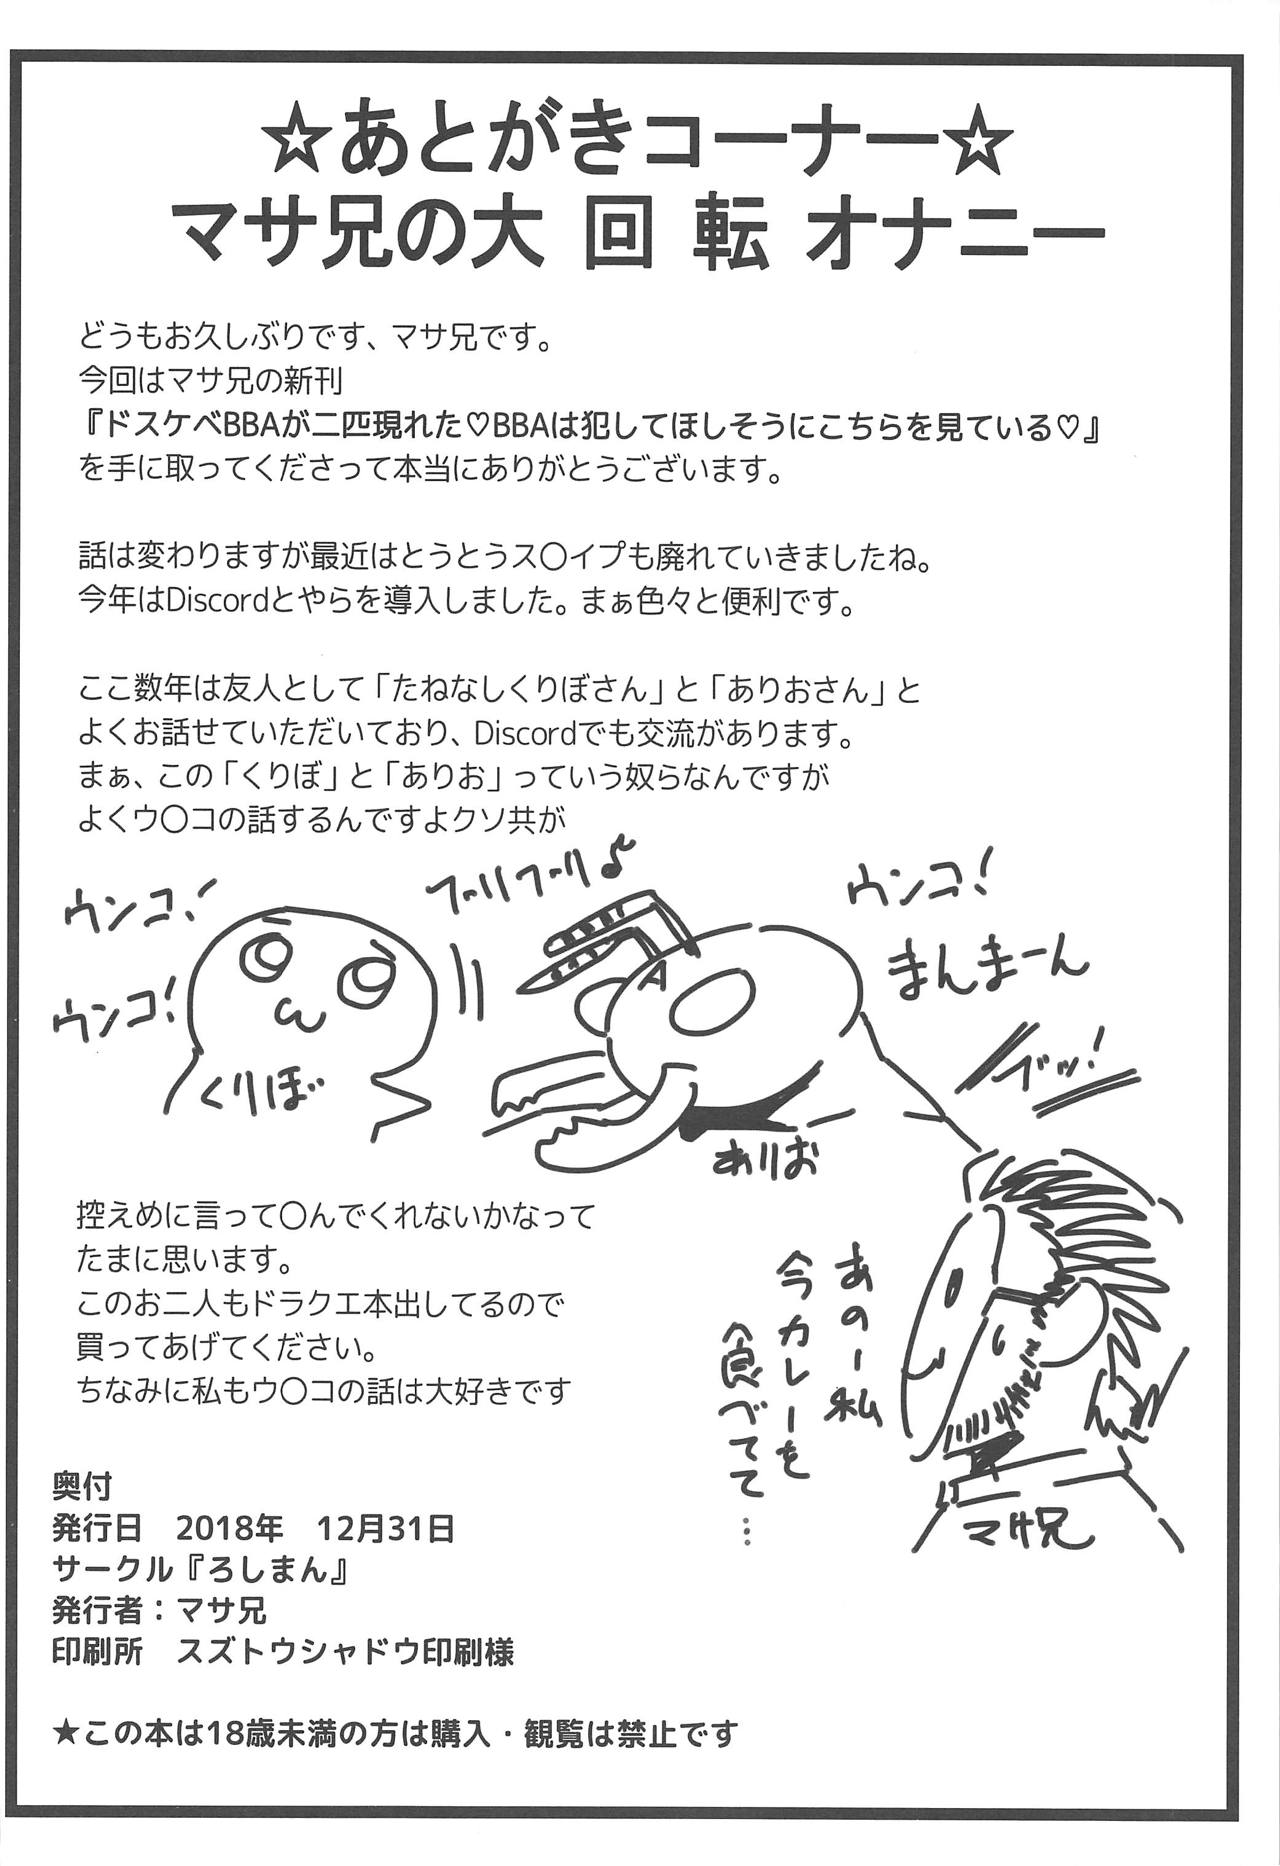 ☆あとがきコーナー☆
マサ兄の大 回 転 オナニー
どうもお久しぶりです、マサ兄です。
今回はマサ兄の新刊
『ドスケベBBAが二匹現れた♡BBAは犯してほしそうにこちらを見ている♡』
を手に取ってくださって本当にありがとうございます。
話は変わりますが最近はとうとうス〇イプも廃れていきましたね。
今年はDiscordとやらを導入しました。まぁ色々と便利です。
ここ数年は友人として「たねなしくりぼさん」と「ありおさん」と
よくお話せていただいており、Discordでも交流があります。
まぁ、この「くりぼ」と「ありお」っていう奴らなんですが
よくウ〇コの話するんですよクソ共が
ウンコ!
ウンコ!
くりぼ
フーリフーリ♪
ウンコ!
まんまーん
ブッ!
ありお
あのー私
今カレーを
食べてて…
マサ兄
控えめに言って〇んでくれないかなって
たまに思います。
このお二人もドラクエ本出してるので
買ってあげてください。
ちなみに私もウ〇コの話は大好きです
奥付
発行日　2018年　12月31日
サークル『ろしまん』
発行者：マサ兄
印刷所　スズトウシャドウ印刷様
★この本は18歳未満の方は購入・観覧は禁止です